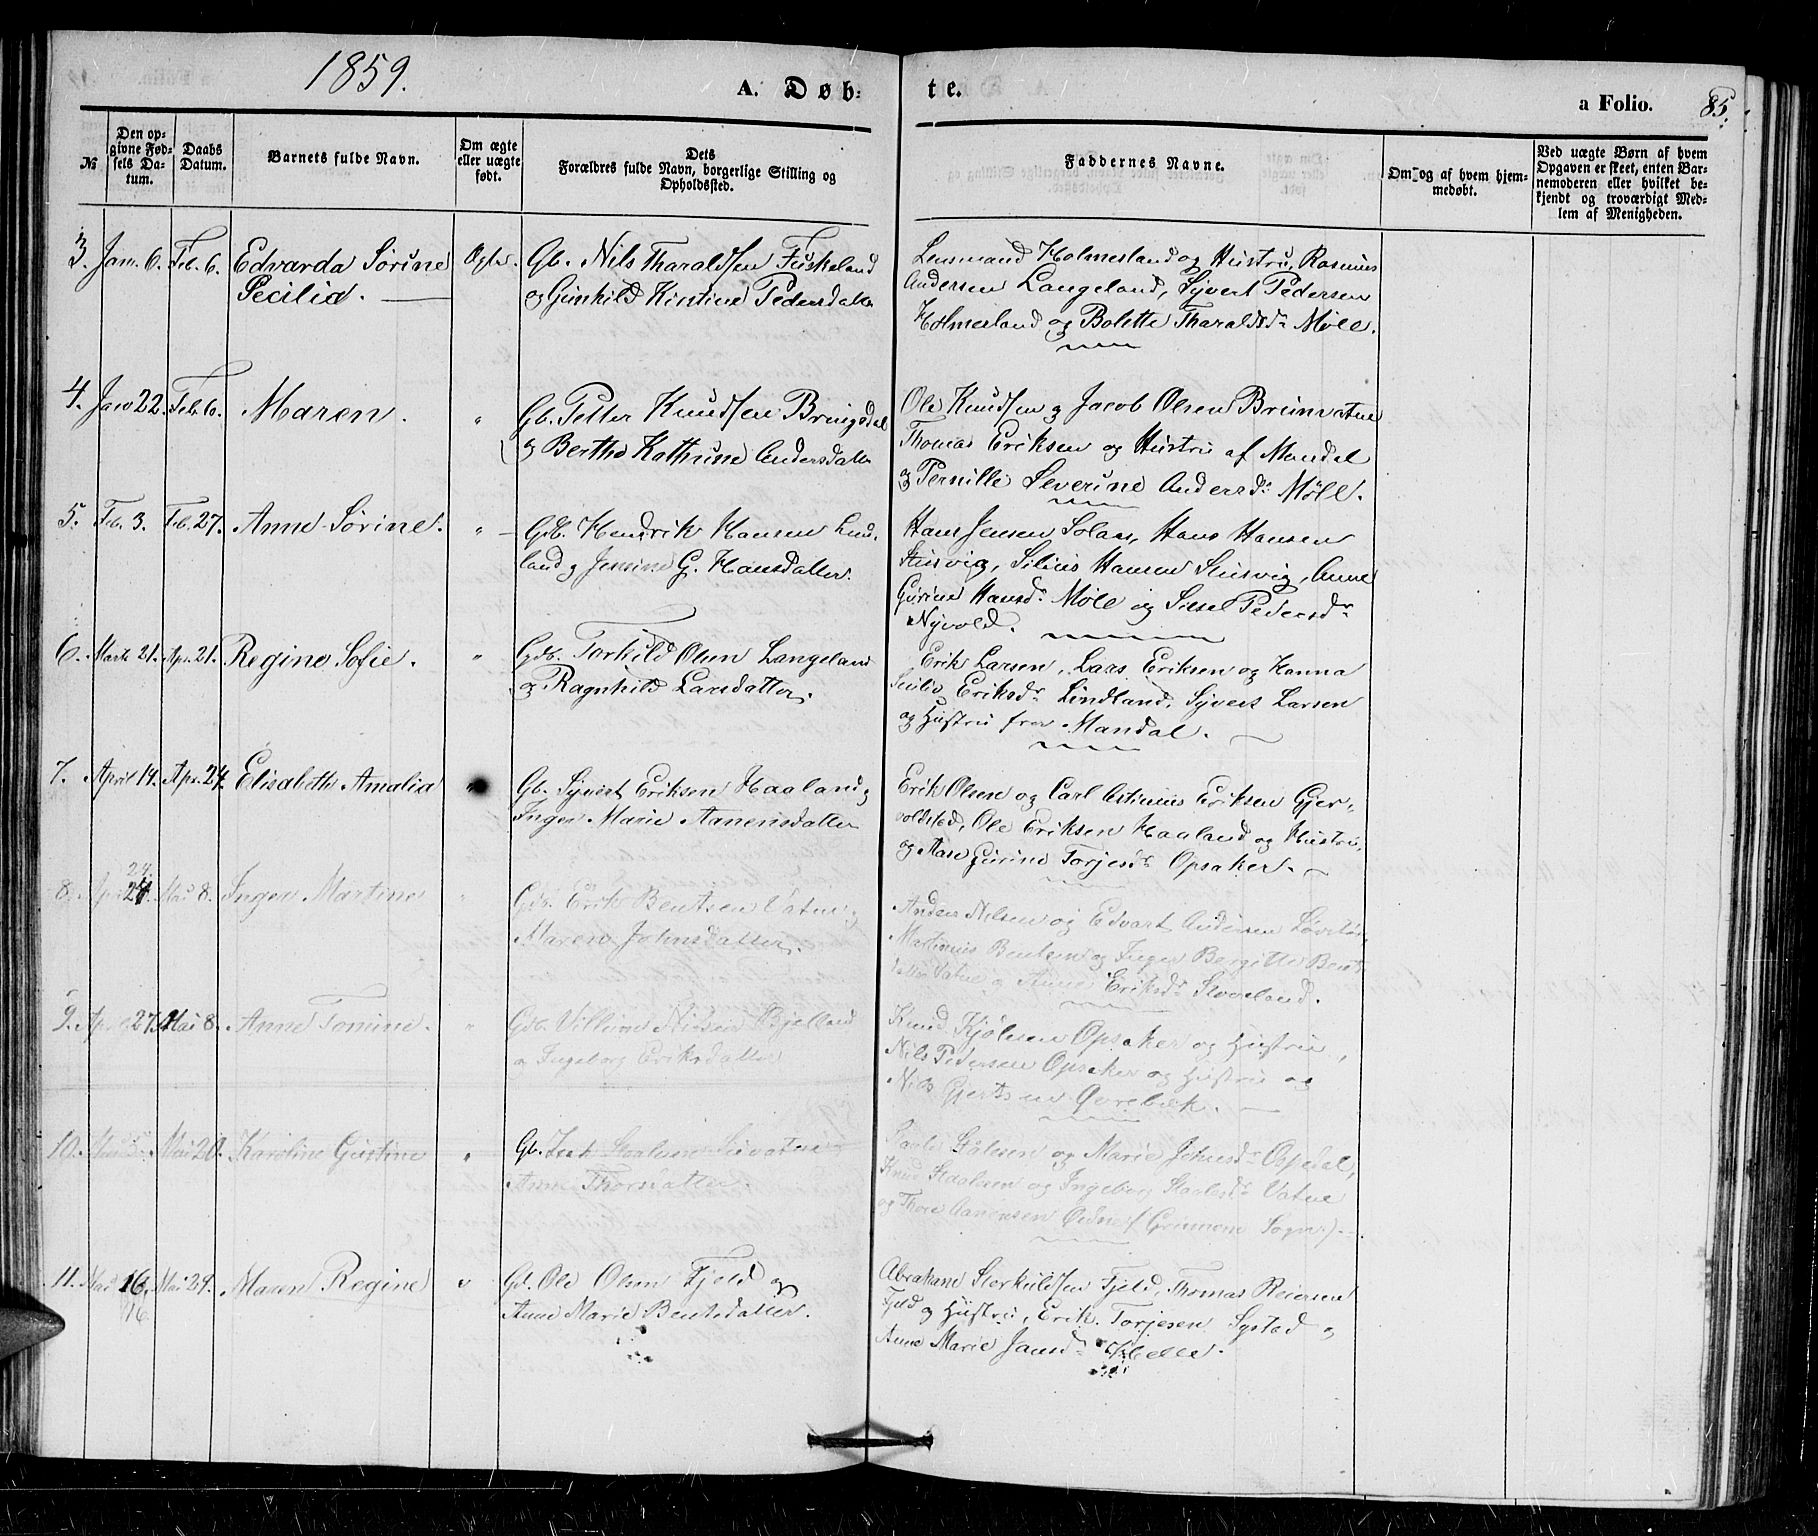 1859.
A. Døbte.
a Folio. 85.
№
Den opgivne Fødsels Datum.
Daabs Datum.
Barnets fulde Navn.
Om ægte eller uægte født.
Dets Forældres fulde Navn, borgerlige Stilling og Opholdssted.
Faddernes Navne.
Om og af hvem hjemmedøbt.
Ved uægte Børn af hvem Opgaven er skeet, enten Barnemoderen eller hvilket bekjendt og troværdigt Medlem af Menigheden.
3. Jan. 6. Feb. 6. Edvarda Sørine
Cecilia.
Gb. Nils Tharaldsen Fuskeland
og Gunhild Kirstine Pedersdatter
Lensmand Holmesland og Hustru, Rasmus
Andersen Langeland, Syvert Pedersen
Holmesland og Bolette Tharaldsdr Møll.
4. Jan 22. Feb. 6. Maren. "
Gb. Petter Knudsen Bringsdal
og Berthe Kathrine Andersdatter
Ole Knudsen og Jacob Olsen Brunvatne
Thomas Eriksen og Hustru af Mandal
og Pernille Severine Andersdr Møll.
5. Feb. 3. Feb. 27. Anne Sørine. "
Gdb. Hendrik Hansen Lun-
land og Jensine G. Hansdatter.
Hans Jensen Solaas, Hans Hansen
Stusvig, Silius Hansen Stusvig, Anne
Gurine Hansdr Møll og Sissel Pedersdr
Nyvold.
6. Marts 21. Apr. 21. Regine Sofie. "
Gdb. Torkild Olsen Langeland
og Ragnhild Larsdatter.
Erik Larsen, Lars Eriksen og Hanna
Eriksdr Lindland, Syvert Larsen
og Hustru fra Mandal.
7. April 14. Apr. 24. Elisabeth Amalia "
Gb. Syvert Eriksen Haaland og
Inger Marie Aanensdatter
Erik Olsen og Carl Eriksen Gjer-
voldstad, Ole Eriksen Haaland og Hustru,
og Aase Gurine Torjesdr Opsaker.
24.
8. Apr. 24. Mai 8. Inger Martine "
Gdb. Erik Bentsen Vatne og
Maren Johnsdatter.
Anders Nilsen og Edvart Andersen
Martinius Bentsen og Inger Bergitte Bents
datter Vatne og Anne Eriksdr Stoveland.
9. April 27. Mai 8. Anne Tomine. "
Gdb. Villum Nilsen Bjelland
og Ingeborg Eriksdatter
Knud Kjølsen Opsaker og Hustru,
Nils Pedersen Opsaker og Hustru og
Nils Gjertsen Øvrebæk.
10. Mai 20. Karoline Gustine "
Gb. Staalesen
Anne Thorsdatter.
Stålesen og Marie Johnsdr Ospedal,
Knud Staalesen og Ingeborg Staalesdr Vatne
og Thore Aanensen
11. Mai 16. Mai 29. Maren Regine "
16.
Gd. Ole Olsen Fjeld og
Anne Marie Bentsdatter.
Abraham Storkuldsen Fjeld, Thomas Reiersen
Fjeld og Hustru, Erik Torjesen Systad og
Anne Marie Jansdr